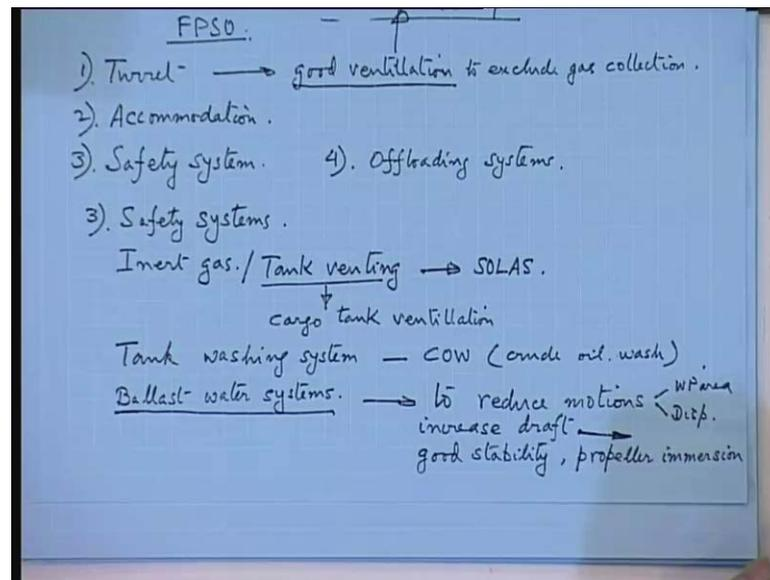 FPSO.
1). Turret → good ventillation to exclude gas collection.
2). Accommodation.
3). Safety system. 4). Offloading systems.
3). Safety systems.
Inert gas. / Tank venting → SOLAS.
cargo tank ventillation
Tank washing system — COW (crude oil. wash)
Ballast water systems. → to reduce motions WP area
Disp.
increase draft →
good stability, propeller immersion